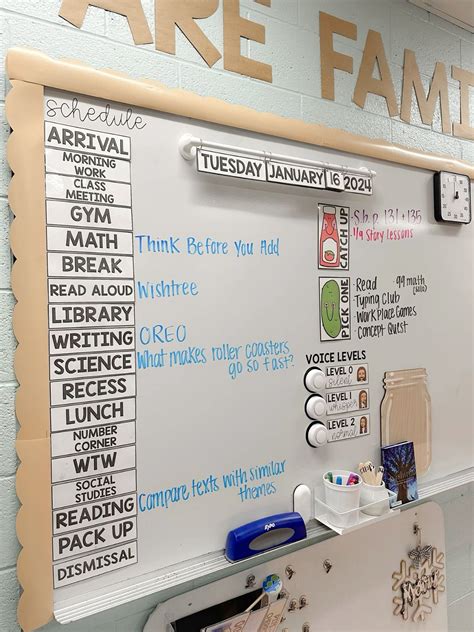 ARE FAMI
schedule
TUESDAY JANUARY 16 2024
ARRIVAL
MORNING WORK
CLASS MEETING
GYM
MATH
Think Before You Add
BREAK
READ ALOUD
Wishtree
LIBRARY
WRITING
OREO
SCIENCE
What makes roller coasters
go so fast?
RECESS
LUNCH
NUMBER CORNER
WTW
SOCIAL STUDIES
READING
Compare texts with similar
themes
PACK UP
DISMISSAL
CATCH UP
-S.b. p. 131 + 135
-1/9 Story lessons
PICK ONE
-Read 99 math
-Typing Club
-Work Place Games
-Concept Quest
VOICE LEVELS
LEVEL 0
silent
LEVEL 1
whisper
LEVEL 2
normal
expo